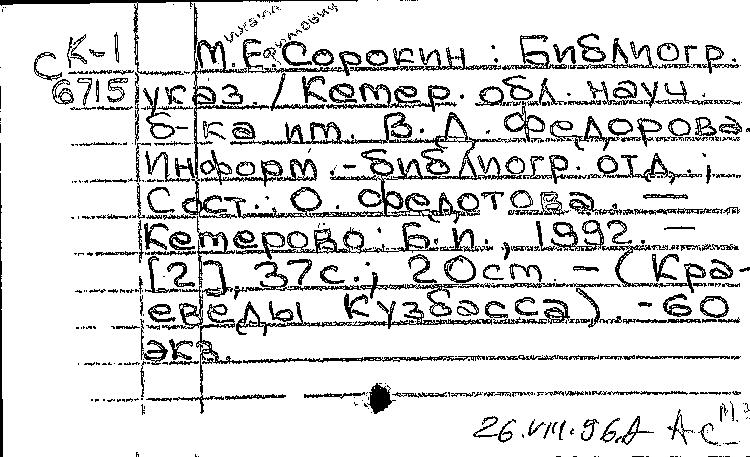 Михаил
Ефимович
СК-1
6715
М.Е. Сорокин : Библиогр.
указ. / Кемер. обл. науч.
б-ка им. В.Д. Федорова.
Информ.-библиогр. отд. ;
Сост.: О. Федотова. —
Кемерово: Б.и., 1992. —
[2], 37с.; 20см. — (Кра-
еведы Кузбасса). -60
экз.
26.VIII.96.